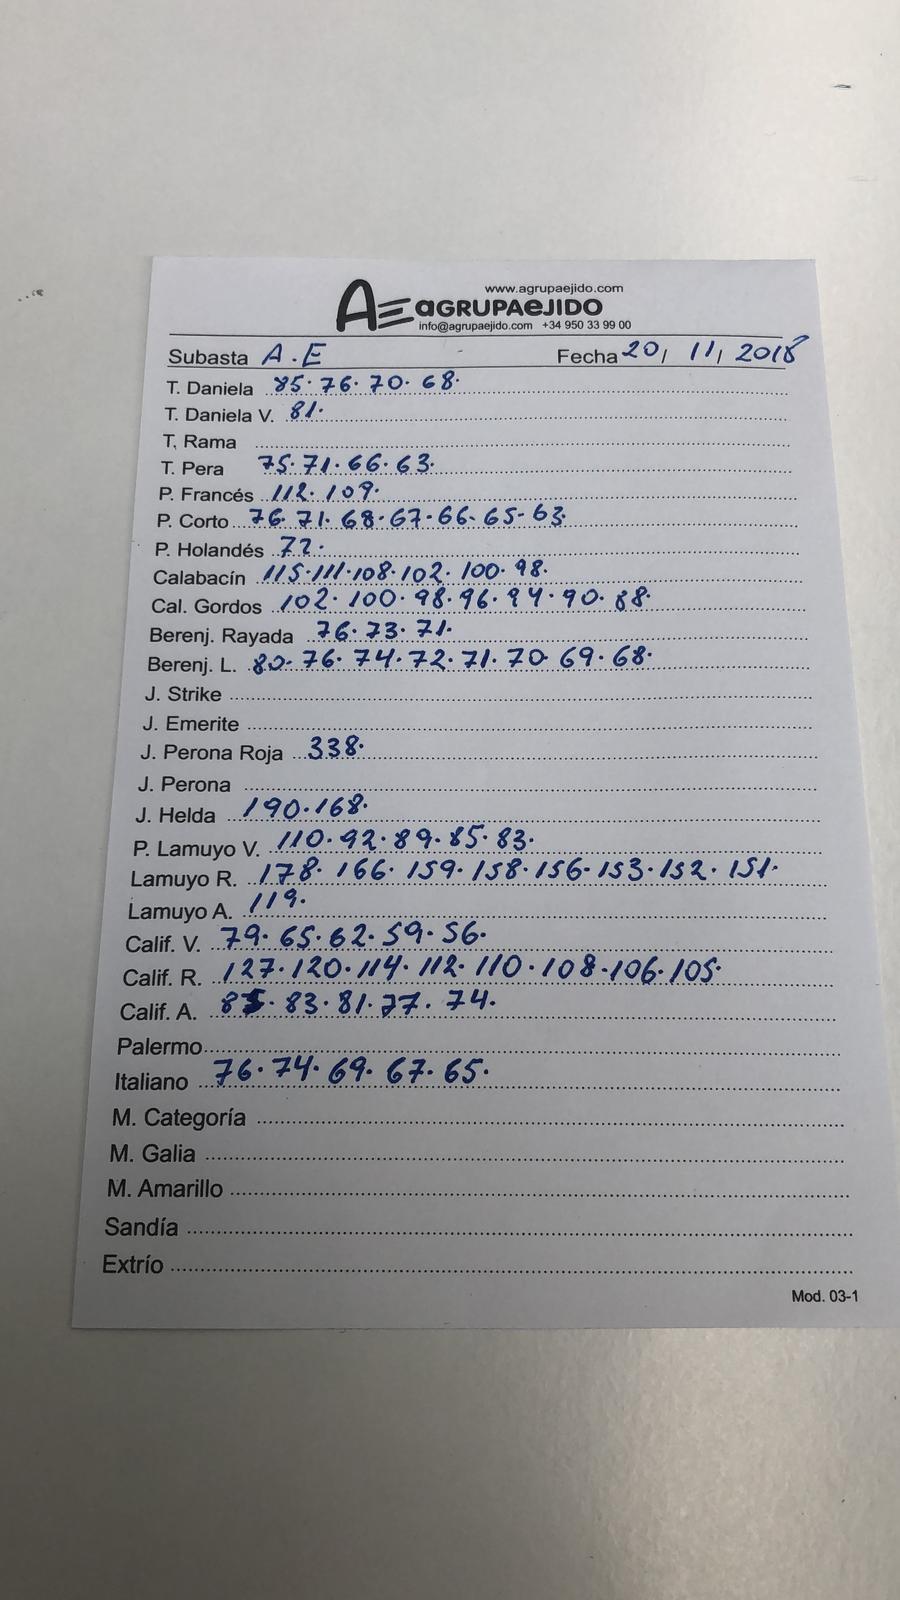 www.agrupaejido.com
AE aGRUPAeJIDO
info@agrupaejido.com +34 950 33 99 00
Subasta A.E Fecha 20/ 11/ 2018
T. Daniela 85. 76. 70. 68.
T. Daniela V. 81.
T. Rama
T. Pera 75. 71. 66. 63.
P. Francés 112. 109.
P. Corto 76. 71. 68. 67. 66. 65. 63.
P. Holandés 72.
Calabacín 115. 111. 108. 102. 100. 98.
Cal. Gordos 102. 100. 98. 96. 94. 90. 88.
Berenj. Rayada 76. 73. 71.
Berenj. L. 80. 76. 74. 72. 71. 70. 69. 68.
J. Strike
J. Emerite
J. Perona Roja 338.
J. Perona
J. Helda 190. 168.
P. Lamuyo V. 110. 92. 89. 85. 83.
Lamuyo R. 178. 166. 159. 158. 156. 153. 152. 151.
Lamuyo A. 119.
Calif. V. 79. 65. 62. 59. 56.
Calif. R. 127. 120. 114. 112. 110. 108. 106. 105.
Calif. A. 85. 83. 81. 77. 74.
Palermo
Italiano 76. 74. 69. 67. 65.
M. Categoría
M. Galia
M. Amarillo
Sandía
Extrío
Mod. 03-1